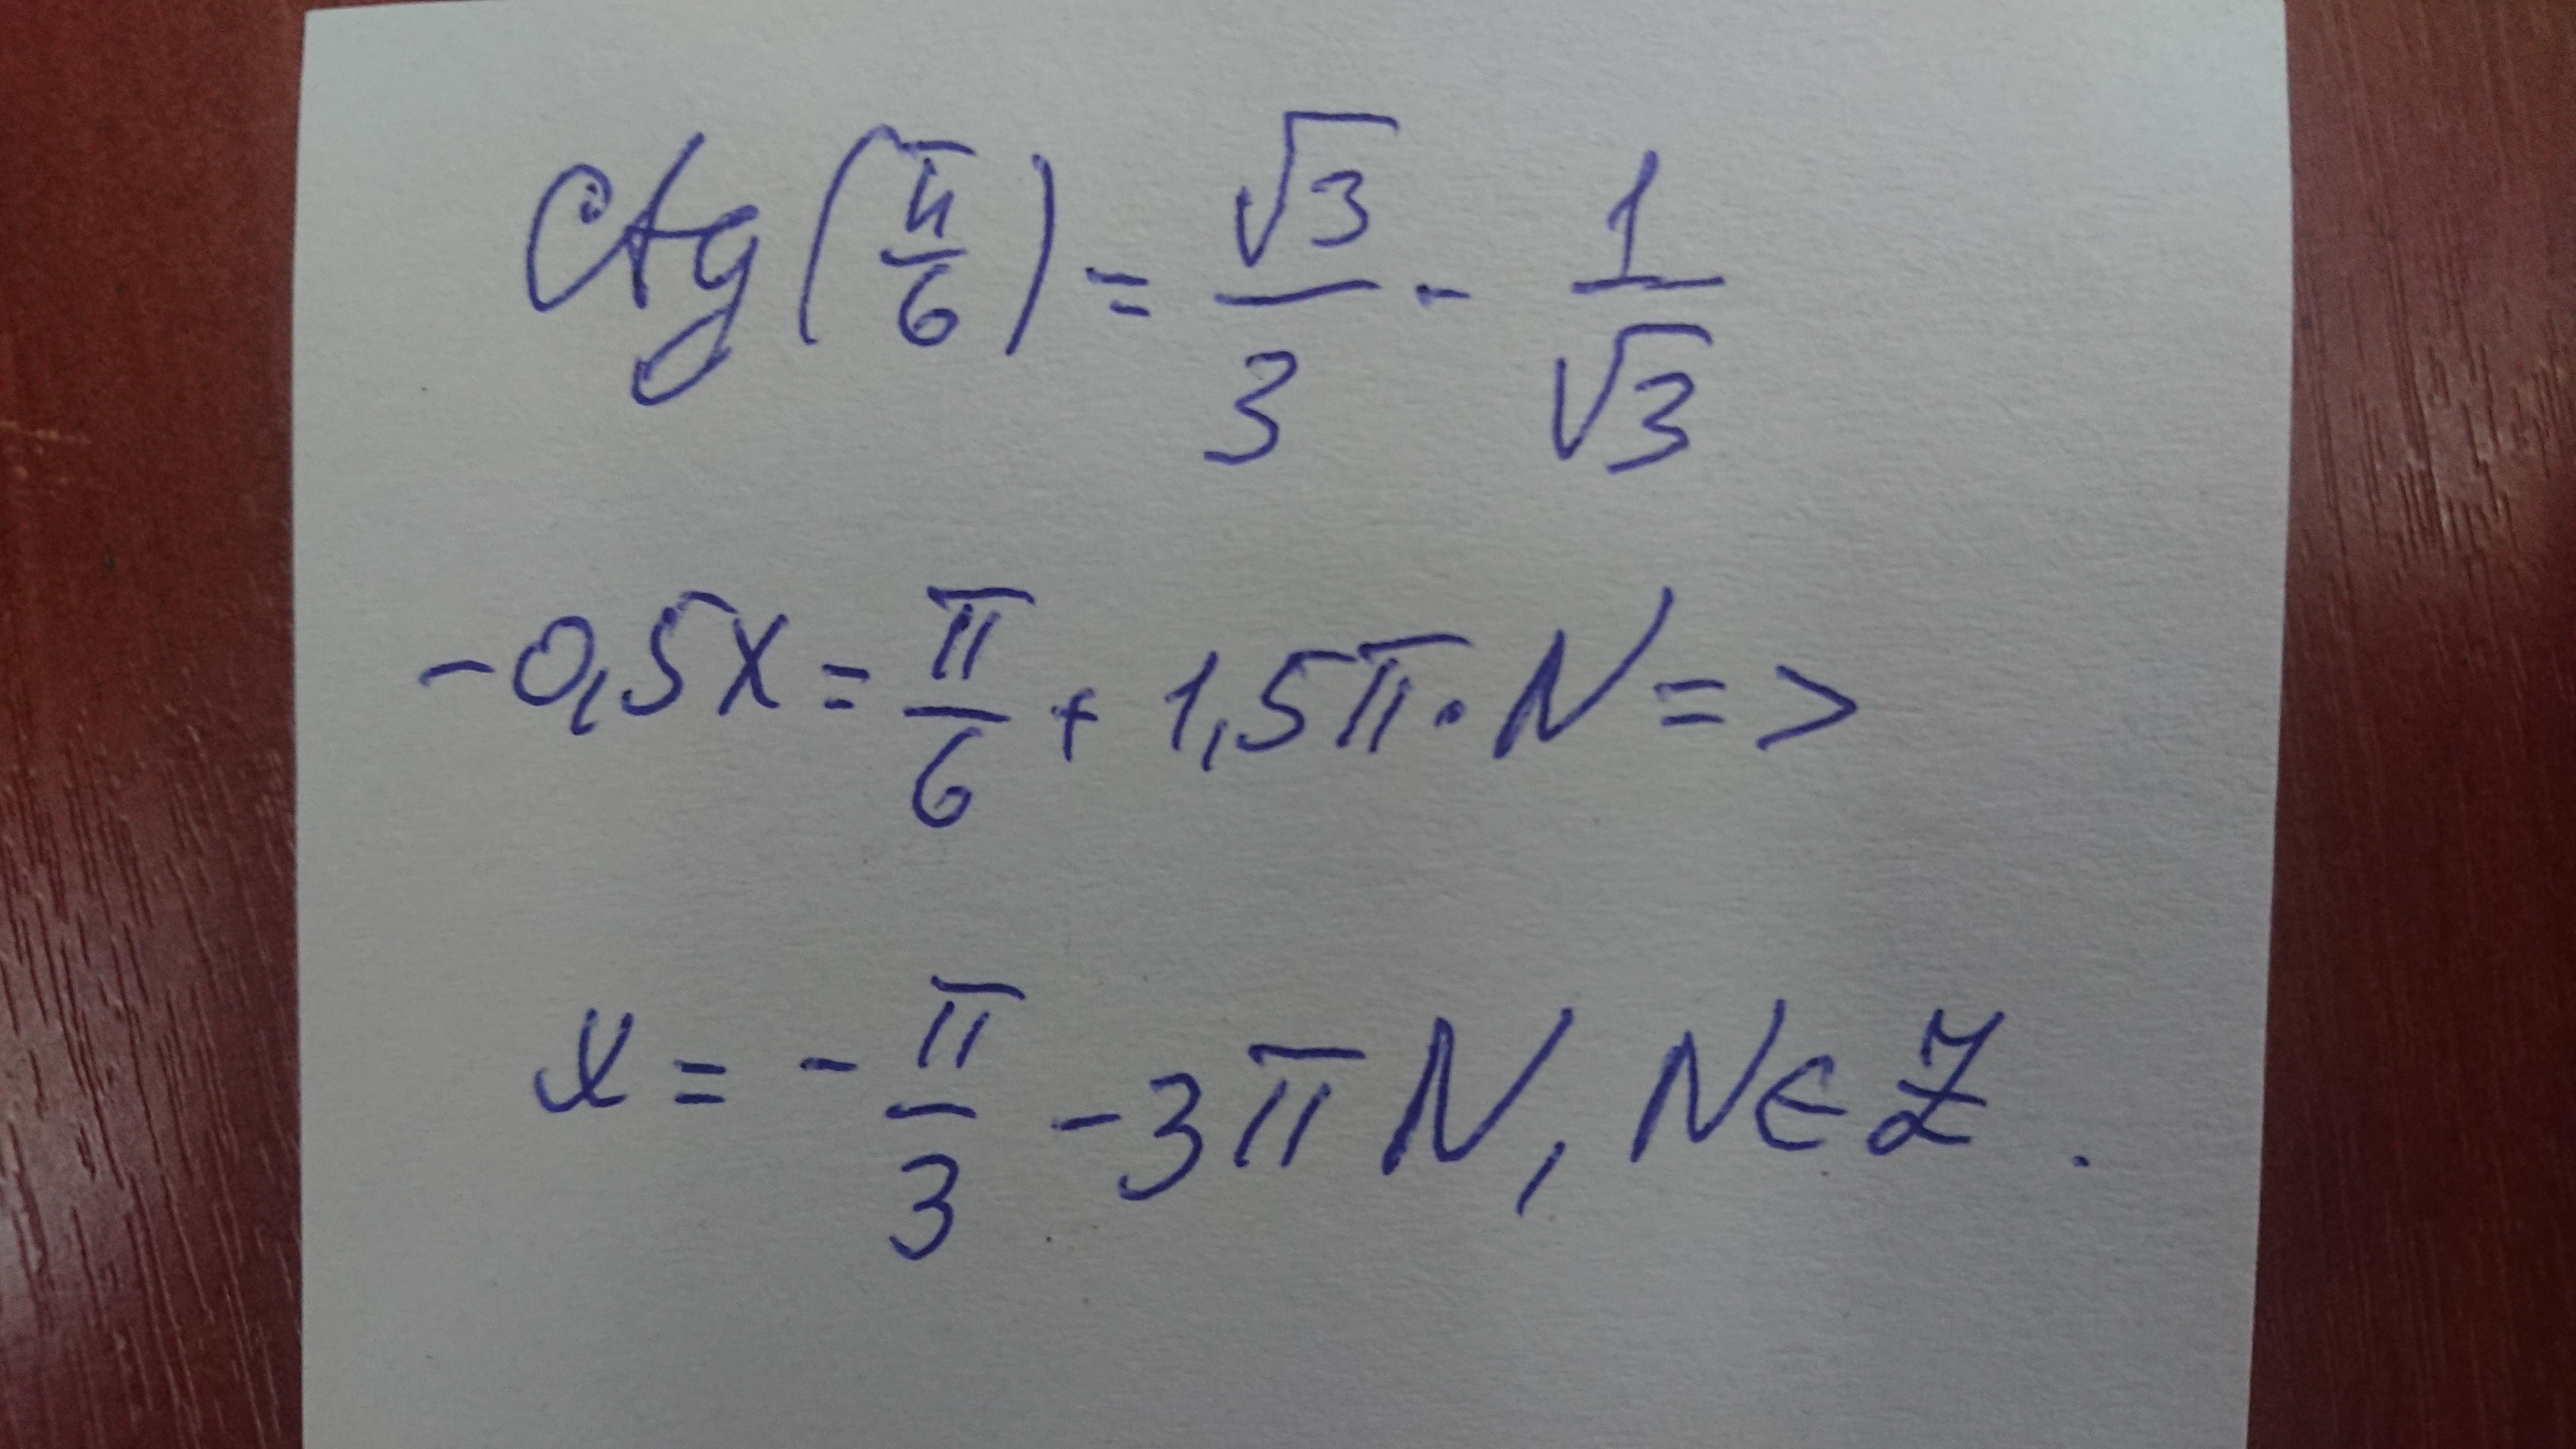 ctg(π/6) = √3/3 - 1/√3
-0,5x = π/6 + 1,5π·N =>
x = -π/3 - 3πN, N∈Z.